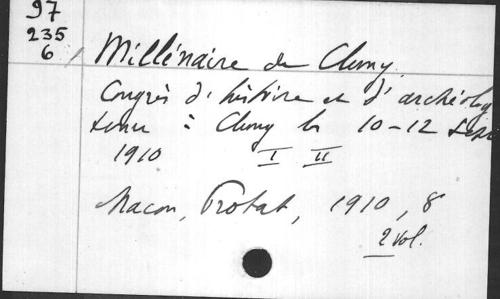 97
235
6
Millénaire de Cluny
Congrès d'histoire et d'archéolog
tenu à Cluny les 10-12 Sept
1910 I II
Macon, Protat, 1910, 8°
2 vol.